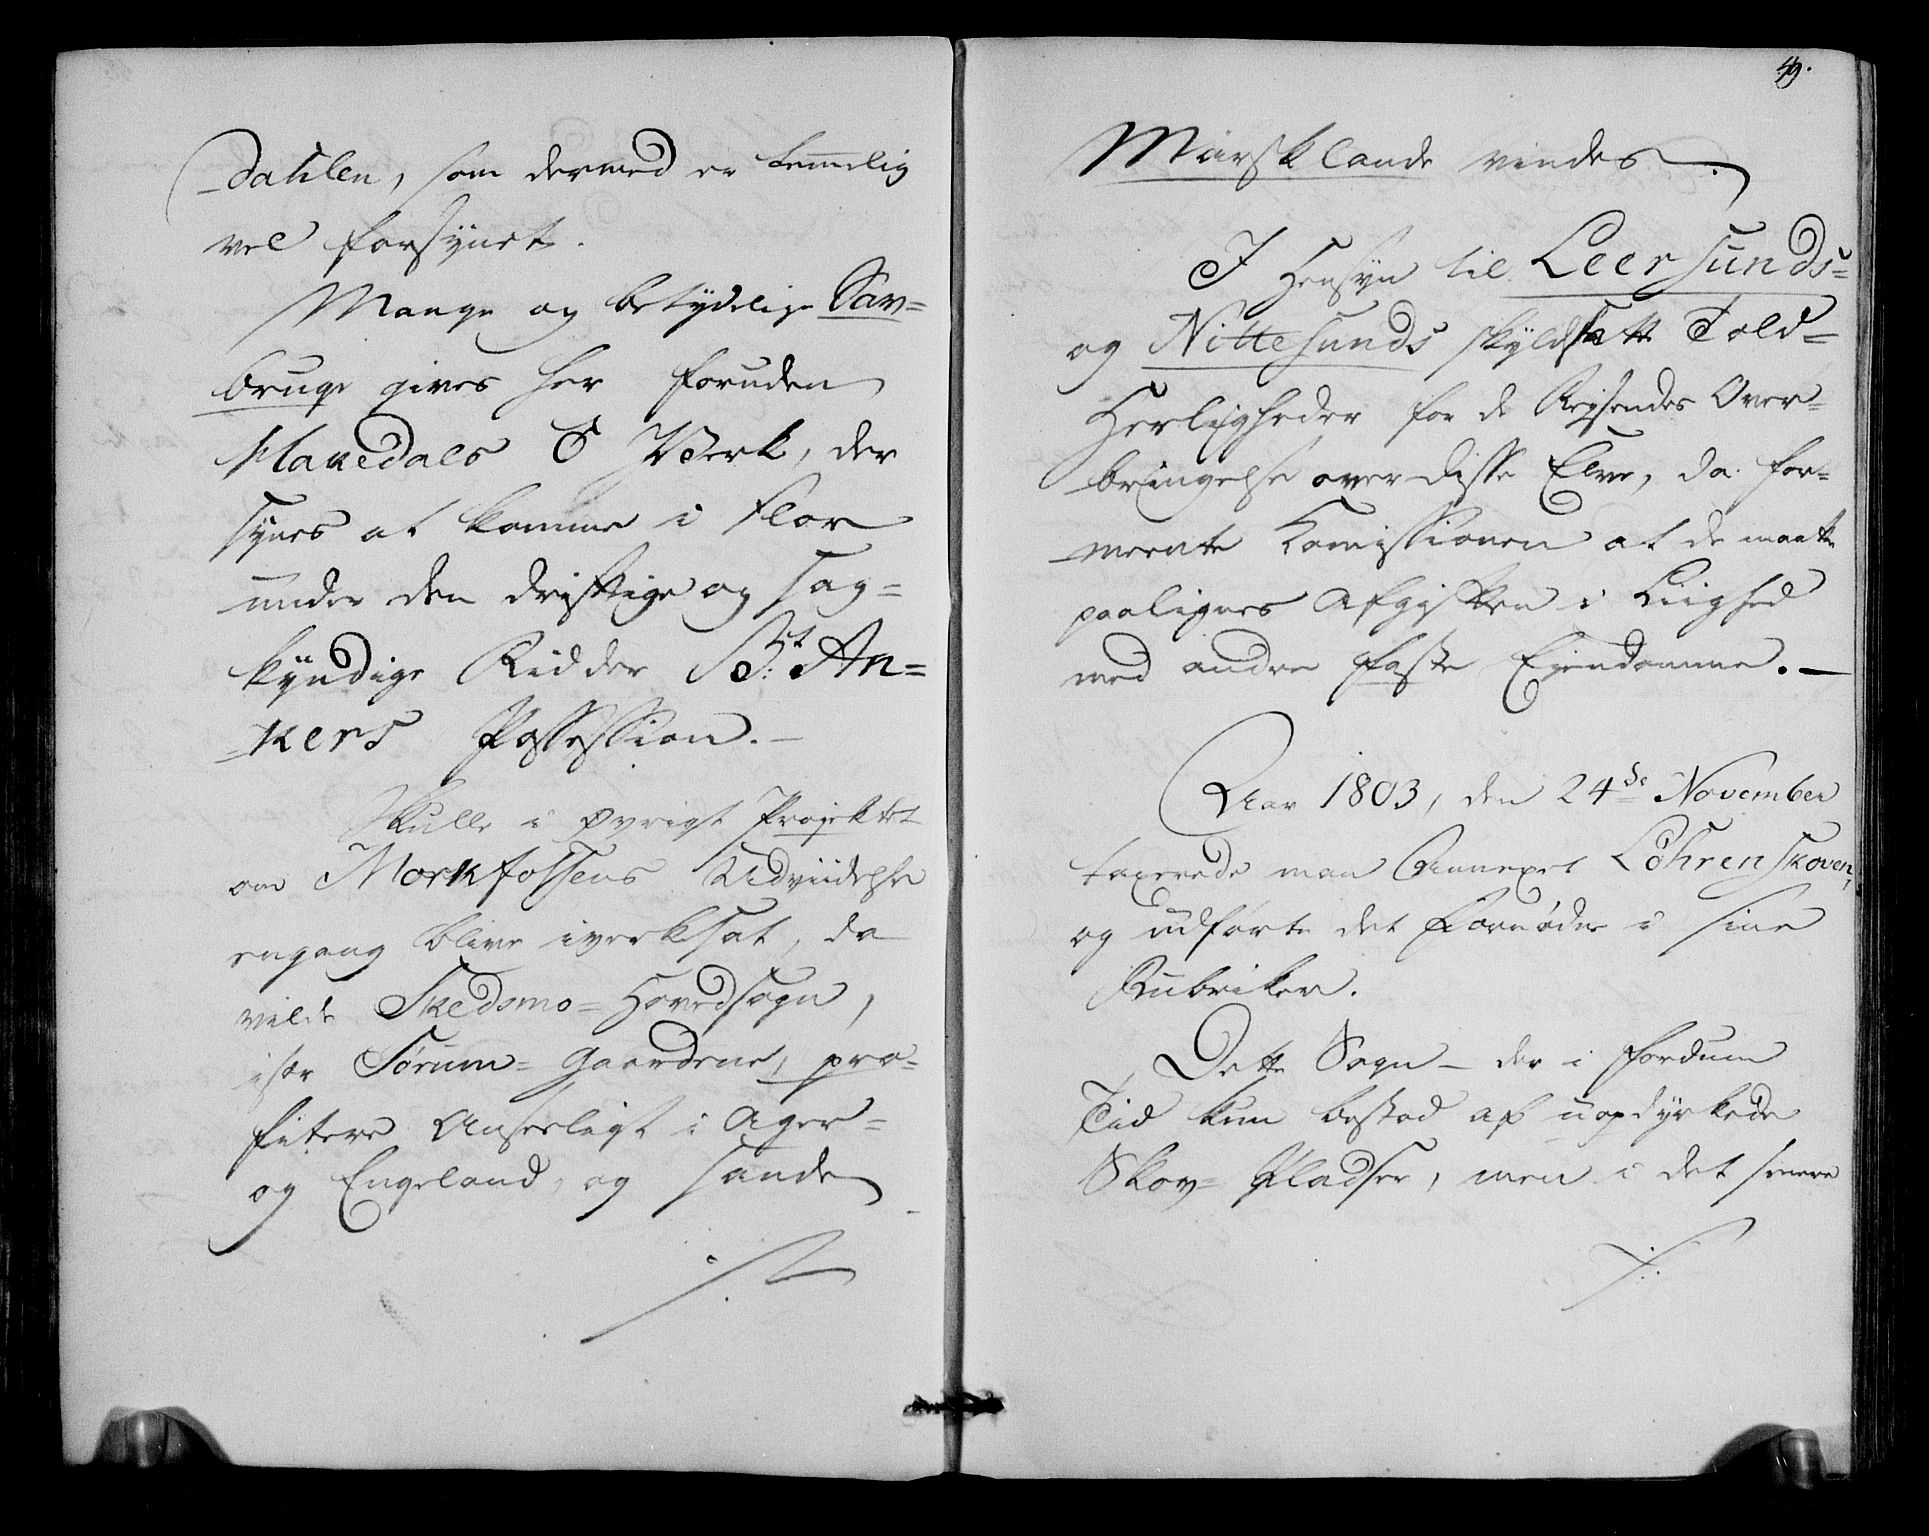 Dahlen, som dermed er temmelig
vel forsÿnet.
Mange og betÿdelige Sav=
bruge gives her foruden
Hakedals Verk, der
sÿnes at komme i Flor
under den driftige og sag=
kÿndige Ridder Bt: An=
kers Possession.—
Skulle i øvrigt Projektet
om Morkfossens Udviidelse
engang blive iverksat, da
vilde Skedsmo=Hovedsogn,
især Sørum=Gaardene, pro=
fitere Anseeligt i Ager=
og Engeland, og sande
./.
49.
Marsklande vindes.
I Hensÿn til Leersunds=
og Nittesunds skÿldsatte Told=
Herligheder for de Reysendes Over=
bringelse over disse Elve, da for=
meente Komissionen at de maatte
paalignes Afgiften i Liighed
med andre faste Ejendomme.—
Aar 1803, den 24de November
taxerede man Annexet Löhrenskoven,
og udførte det Fornødne i sine
Rubriker.
Dette Sogn – der i fordum
Tid kun bestod af uopdÿrkede
Skov= Pladser, men i det senere
./.